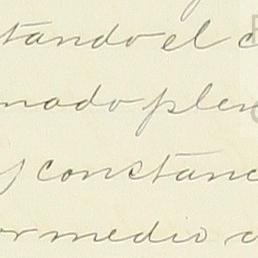 tando el c
mado plen
y constanc
or medio d